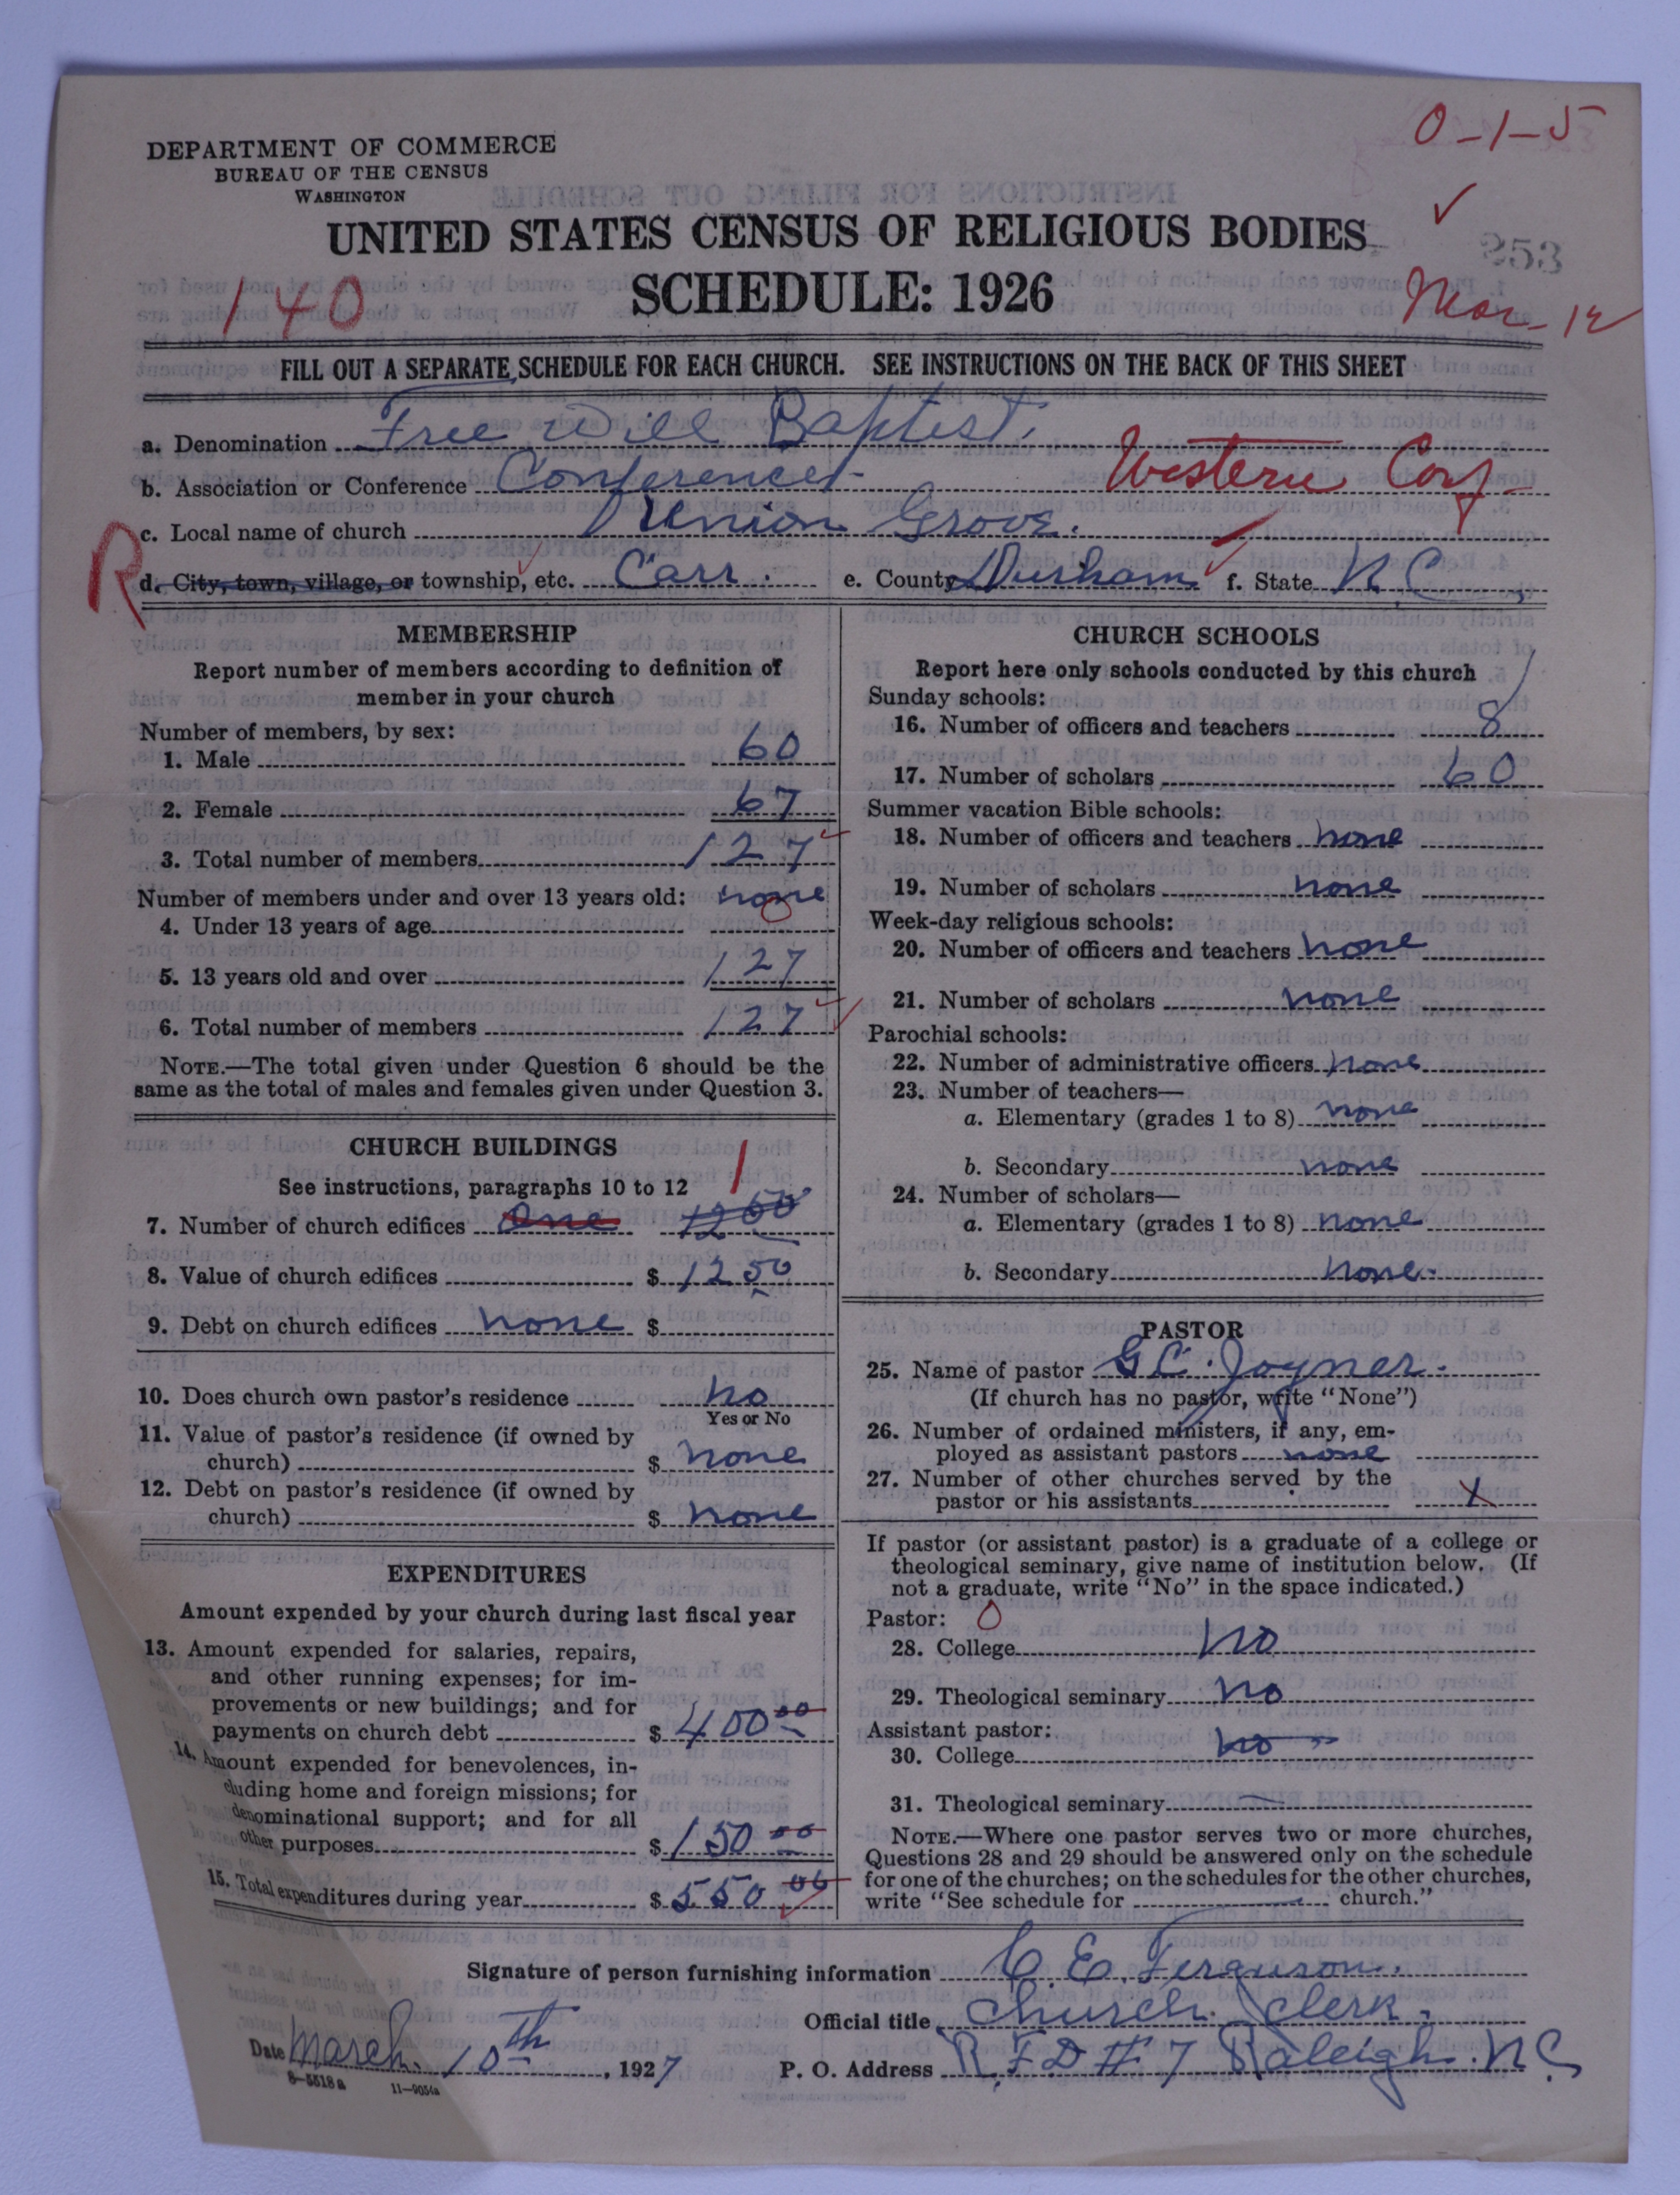 0-1-5
DEPARTMENT OF COMMERCE
BUREAU OF THE CENSUS
WASHINGTON
UNITED STATES CENSUS OF RELIGIOUS BODIES
253
140
SCHEDULE: 1926
Mar-12
FILL OUT A SEPARATE SCHEDULE FOR EACH CHURCH. SEE INSTRUCTIONS ON THE BACK OF THIS SHEET
a. Denomination Free Will Baptist.
b. Association or Conference Conference Western Conf
c. Local name of church Union Grove.
R
d. City, town, village, or township, etc. Carr. e. County Durham f. State N.C.
MEMBERSHIP
Report number of members according to definition of
member in your church
Number of members, by sex:
1. Male 60
2. Female 67
3. Total number of members 127
Number of members under and over 13 years old: none
4. Under 13 years of age
5. 13 years old and over 127
6. Total number of members 127
NOTE.—The total given under Question 6 should be the
same as the total of males and females given under Question 3.
CHURCH BUILDINGS
See instructions, paragraphs 10 to 12 1
7. Number of church edifices One 1200
8. Value of church edifices $ 1250
9. Debt on church edifices none $
10. Does church own pastor's residence no
Yes or No
11. Value of pastor's residence (if owned by
church) $ none
12. Debt on pastor's residence (if owned by
church) $ none
EXPENDITURES
Amount expended by your church during last fiscal year
13. Amount expended for salaries, repairs,
and other running expenses; for im-
provements or new buildings; and for
payments on church debt $ 400 00
14. Amount expended for benevolences, in-
cluding home and foreign missions; for
denominational support; and for all
other purposes $ 150 00
15. Total expenditures during year $ 550 00
CHURCH SCHOOLS
Report here only schools conducted by this church
Sunday schools:
16. Number of officers and teachers 8
17. Number of scholars 60
Summer vacation Bible schools:
18. Number of officers and teachers none
19. Number of scholars none
Week-day religious schools:
20. Number of officers and teachers none
21. Number of scholars none
Parochial schools:
22. Number of administrative officers none
23. Number of teachers—
a. Elementary (grades 1 to 8) none
b. Secondary none
24. Number of scholars—
a. Elementary (grades 1 to 8) none
b. Secondary none.
PASTOR
25. Name of pastor G C. Joyner.
(If church has no pastor, write "None")
26. Number of ordained ministers, if any, em-
ployed as assistant pastors none
27. Number of other churches served by the
pastor or his assistants X
If pastor (or assistant pastor) is a graduate of a college or
theological seminary, give name of institution below. (If
not a graduate, write "No" in the space indicated.)
Pastor: 0
28. College no
29. Theological seminary no
Assistant pastor:
30. College no
31. Theological seminary
NOTE.—Where one pastor serves two or more churches,
Questions 28 and 29 should be answered only on the schedule
for one of the churches; on the schedules for the other churches,
write "See schedule for church."
Signature of person furnishing information C. E. Ferguson.
Official title Church Clerk.
Date March. 10th, 1927 P. O. Address R.F.D # 7 Raleigh. N.C.
8-5518 a 11-9054a